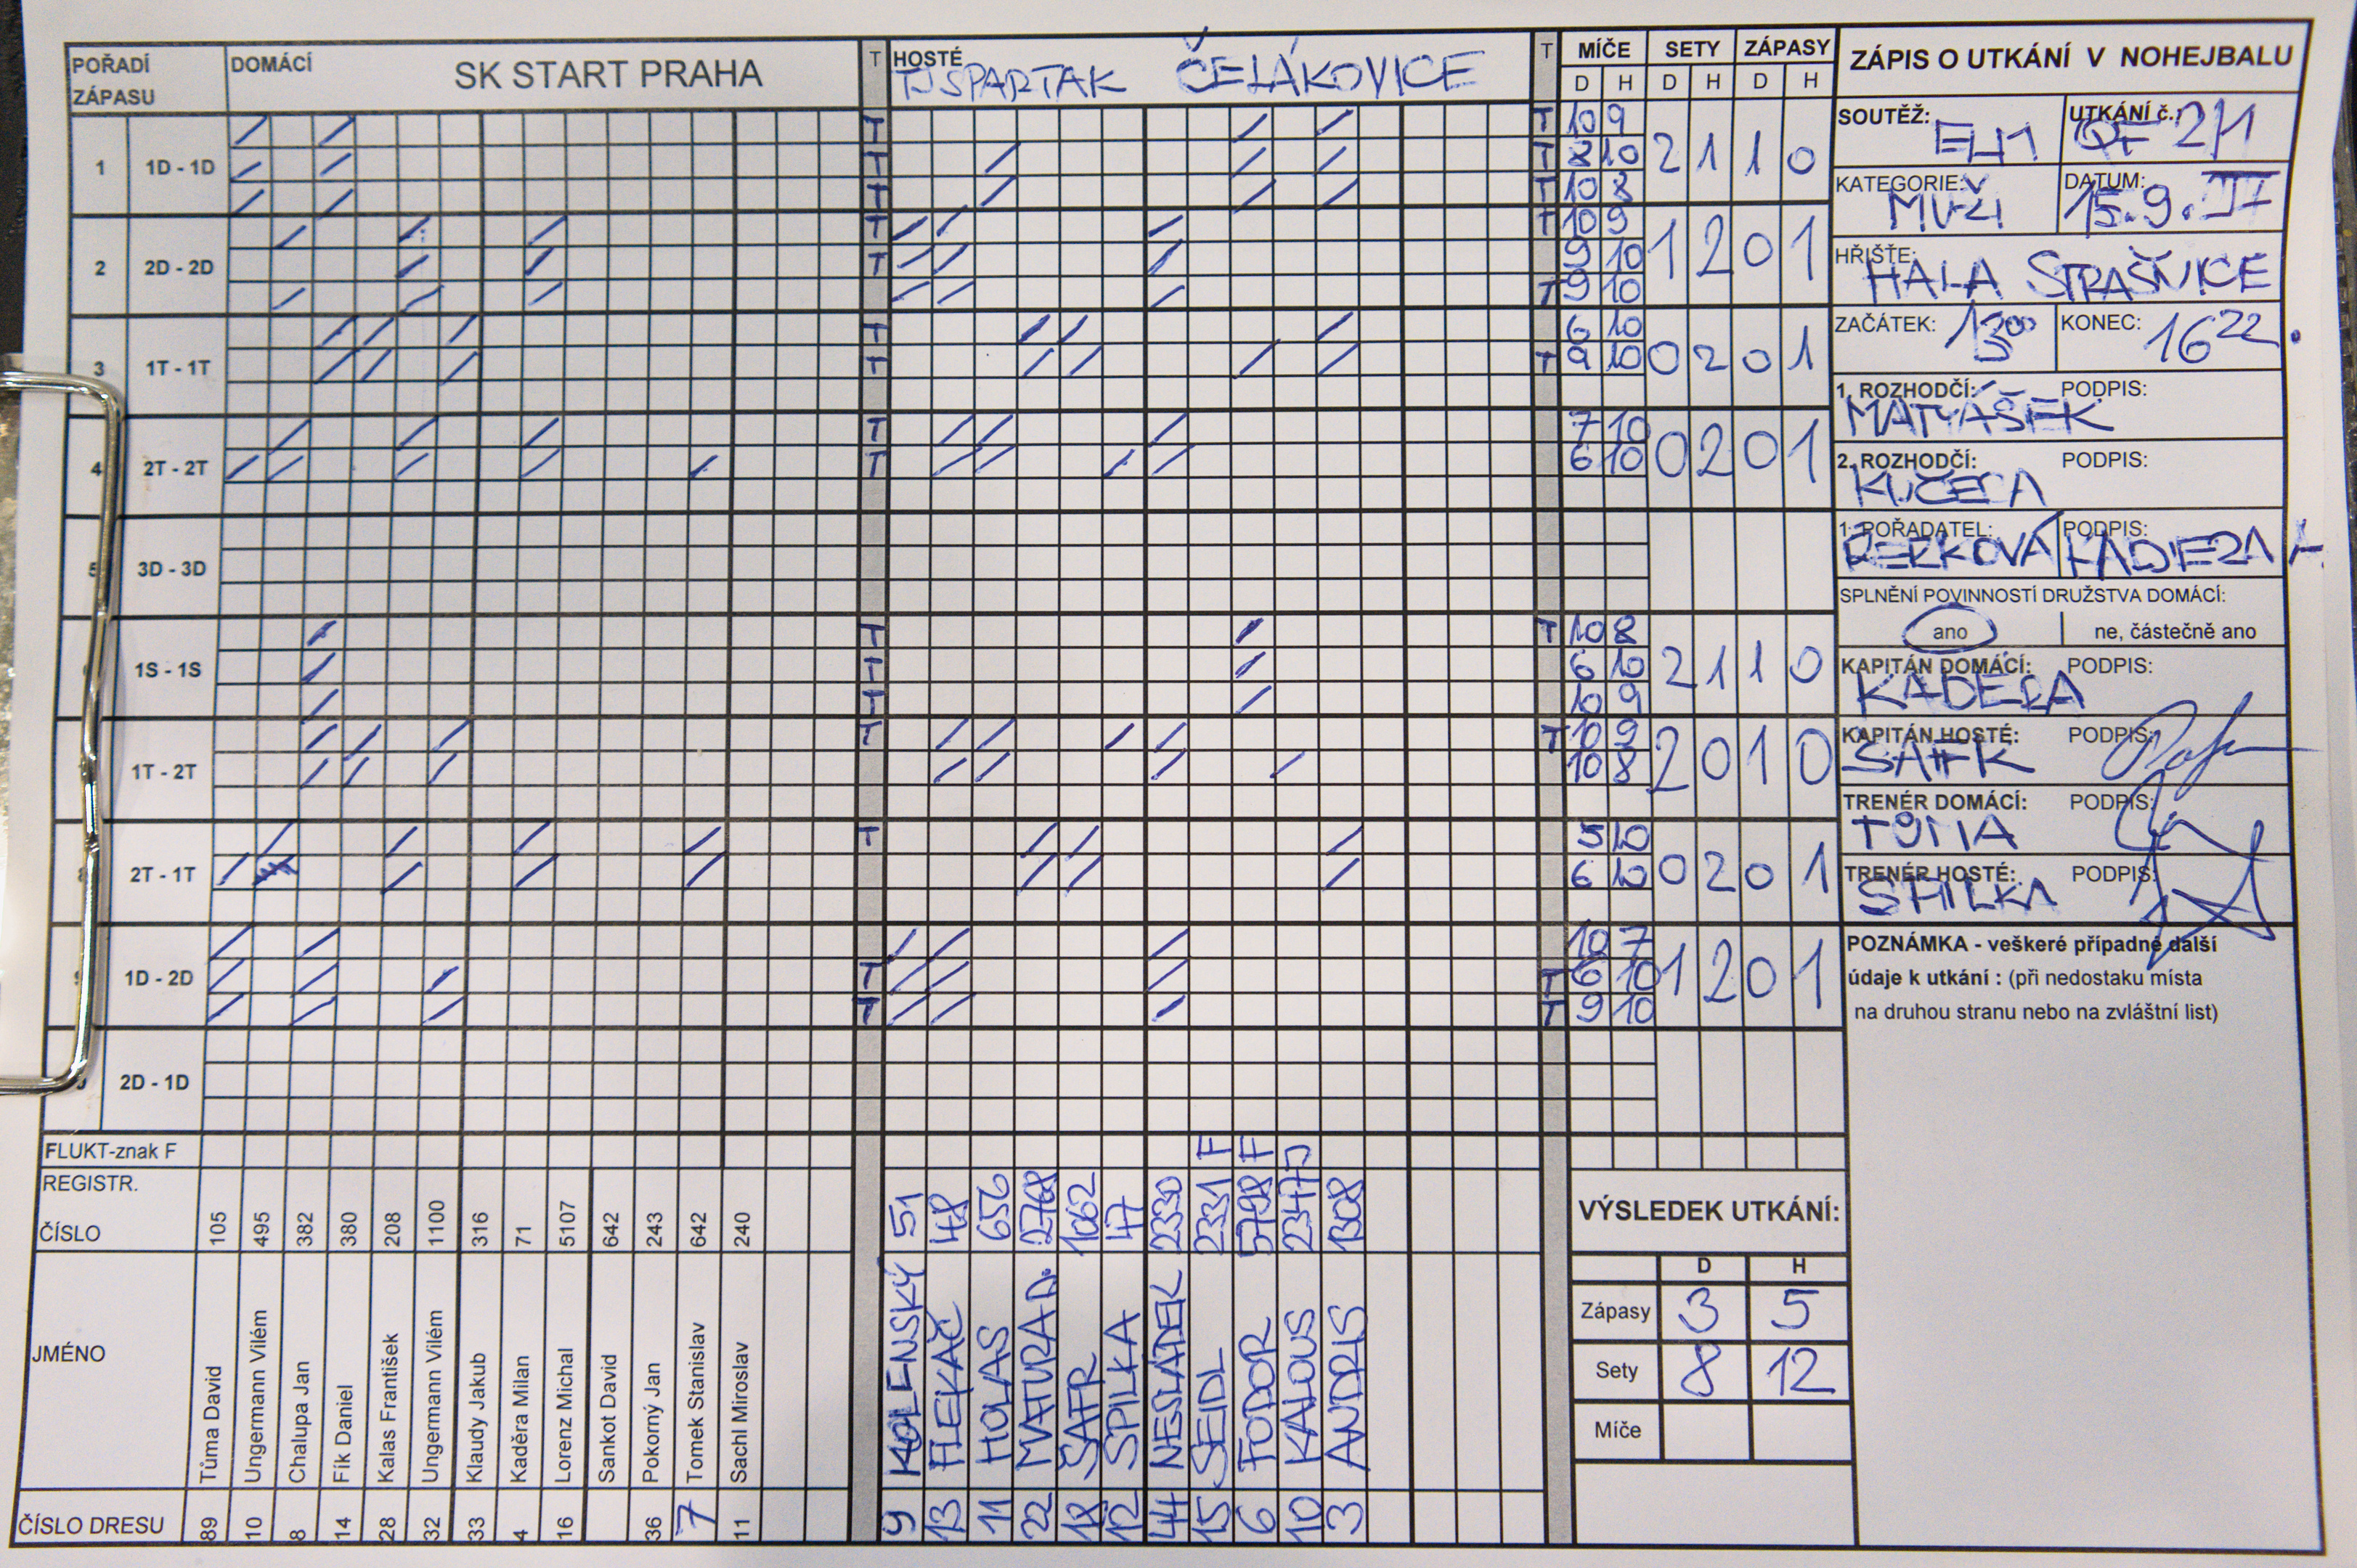 POŘADÍ ZÁPASU DOMÁCÍ SK START PRAHA T HOSTÉ TJ SPARTAK ČELÁKOVICE T MÍČE SETY ZÁPASY
D H D H D H
1 1D - 1D T T 10 9
T T 8 10 2 1 1 0
T T 10 8
2 2D - 2D T T 10 9
T 9 10 1 2 0 1
T 9 10
3 1T - 1T T 6 10
T T 9 10 0 2 0 1
4 2T - 2T T 7 10
T 6 10 0 2 0 1
5 3D - 3D
1S - 1S T T 10 8
T 6 10 2 1 1 0
T 10 9
1T - 2T T T 10 9
10 8 2 0 1 0
2T - 1T T 5 10
6 10 0 2 0 1
1D - 2D 10 7
T T 6 10 1 2 0 1
T T 9 10
2D - 1D
FLUKT-znak F F F
REGISTR. ČÍSLO 105 495 382 380 208 1100 316 71 5107 642 243 642 240
51 48 656 2768 1062 47 2330 2331 5798 2347 1308
JMÉNO
Tůma David
Ungermann Vilém
Chalupa Jan
Fík Daniel
Kalas František
Ungermann Vilém
Klaudy Jakub
Kaděra Milan
Lorenz Michal
Sankot David
Pokorný Jan
Tomek Stanislav
Sachl Miroslav
KOLENSKÝ
FLEKAČ
HOLAS
MATURA D.
ŠAFR
SPILKA
NESLÁDEK
SEIDL
FODOR
KALOUS
ANDRIS
ČÍSLO DRESU 89 10 8 14 28 32 33 4 16 36 7 11
9 13 11 22 18 12 44 15 6 10 3
ZÁPIS O UTKÁNÍ V NOHEJBALU
SOUTĚŽ: UTKÁNÍ č.:
QF 2/1
KATEGORIE: DATUM:
MUŽI 15.9.
HŘIŠTĚ:
HALA STRAŠNICE
ZAČÁTEK: 13 00 KONEC: 16 22
1. ROZHODČÍ: PODPIS:
MATYÁŠEK
2. ROZHODČÍ: PODPIS:
KUČERA
1. POŘADATEL: PODPIS:
SPLNĚNÍ POVINNOSTÍ DRUŽSTVA DOMÁCÍ:
ano ne, částečně ano
KAPITÁN DOMÁCÍ: PODPIS:
KADĚRA
KAPITÁN HOSTÉ: PODPIS:
TRENÉR DOMÁCÍ: PODPIS:
TŮMA
TRENÉR HOSTÉ: PODPIS:
SPILKA
POZNÁMKA - veškeré případné další
údaje k utkání : (při nedostaku místa
na druhou stranu nebo na zvláštní list)
VÝSLEDEK UTKÁNÍ:
D H
Zápasy 3 5
Sety 8 12
Míče